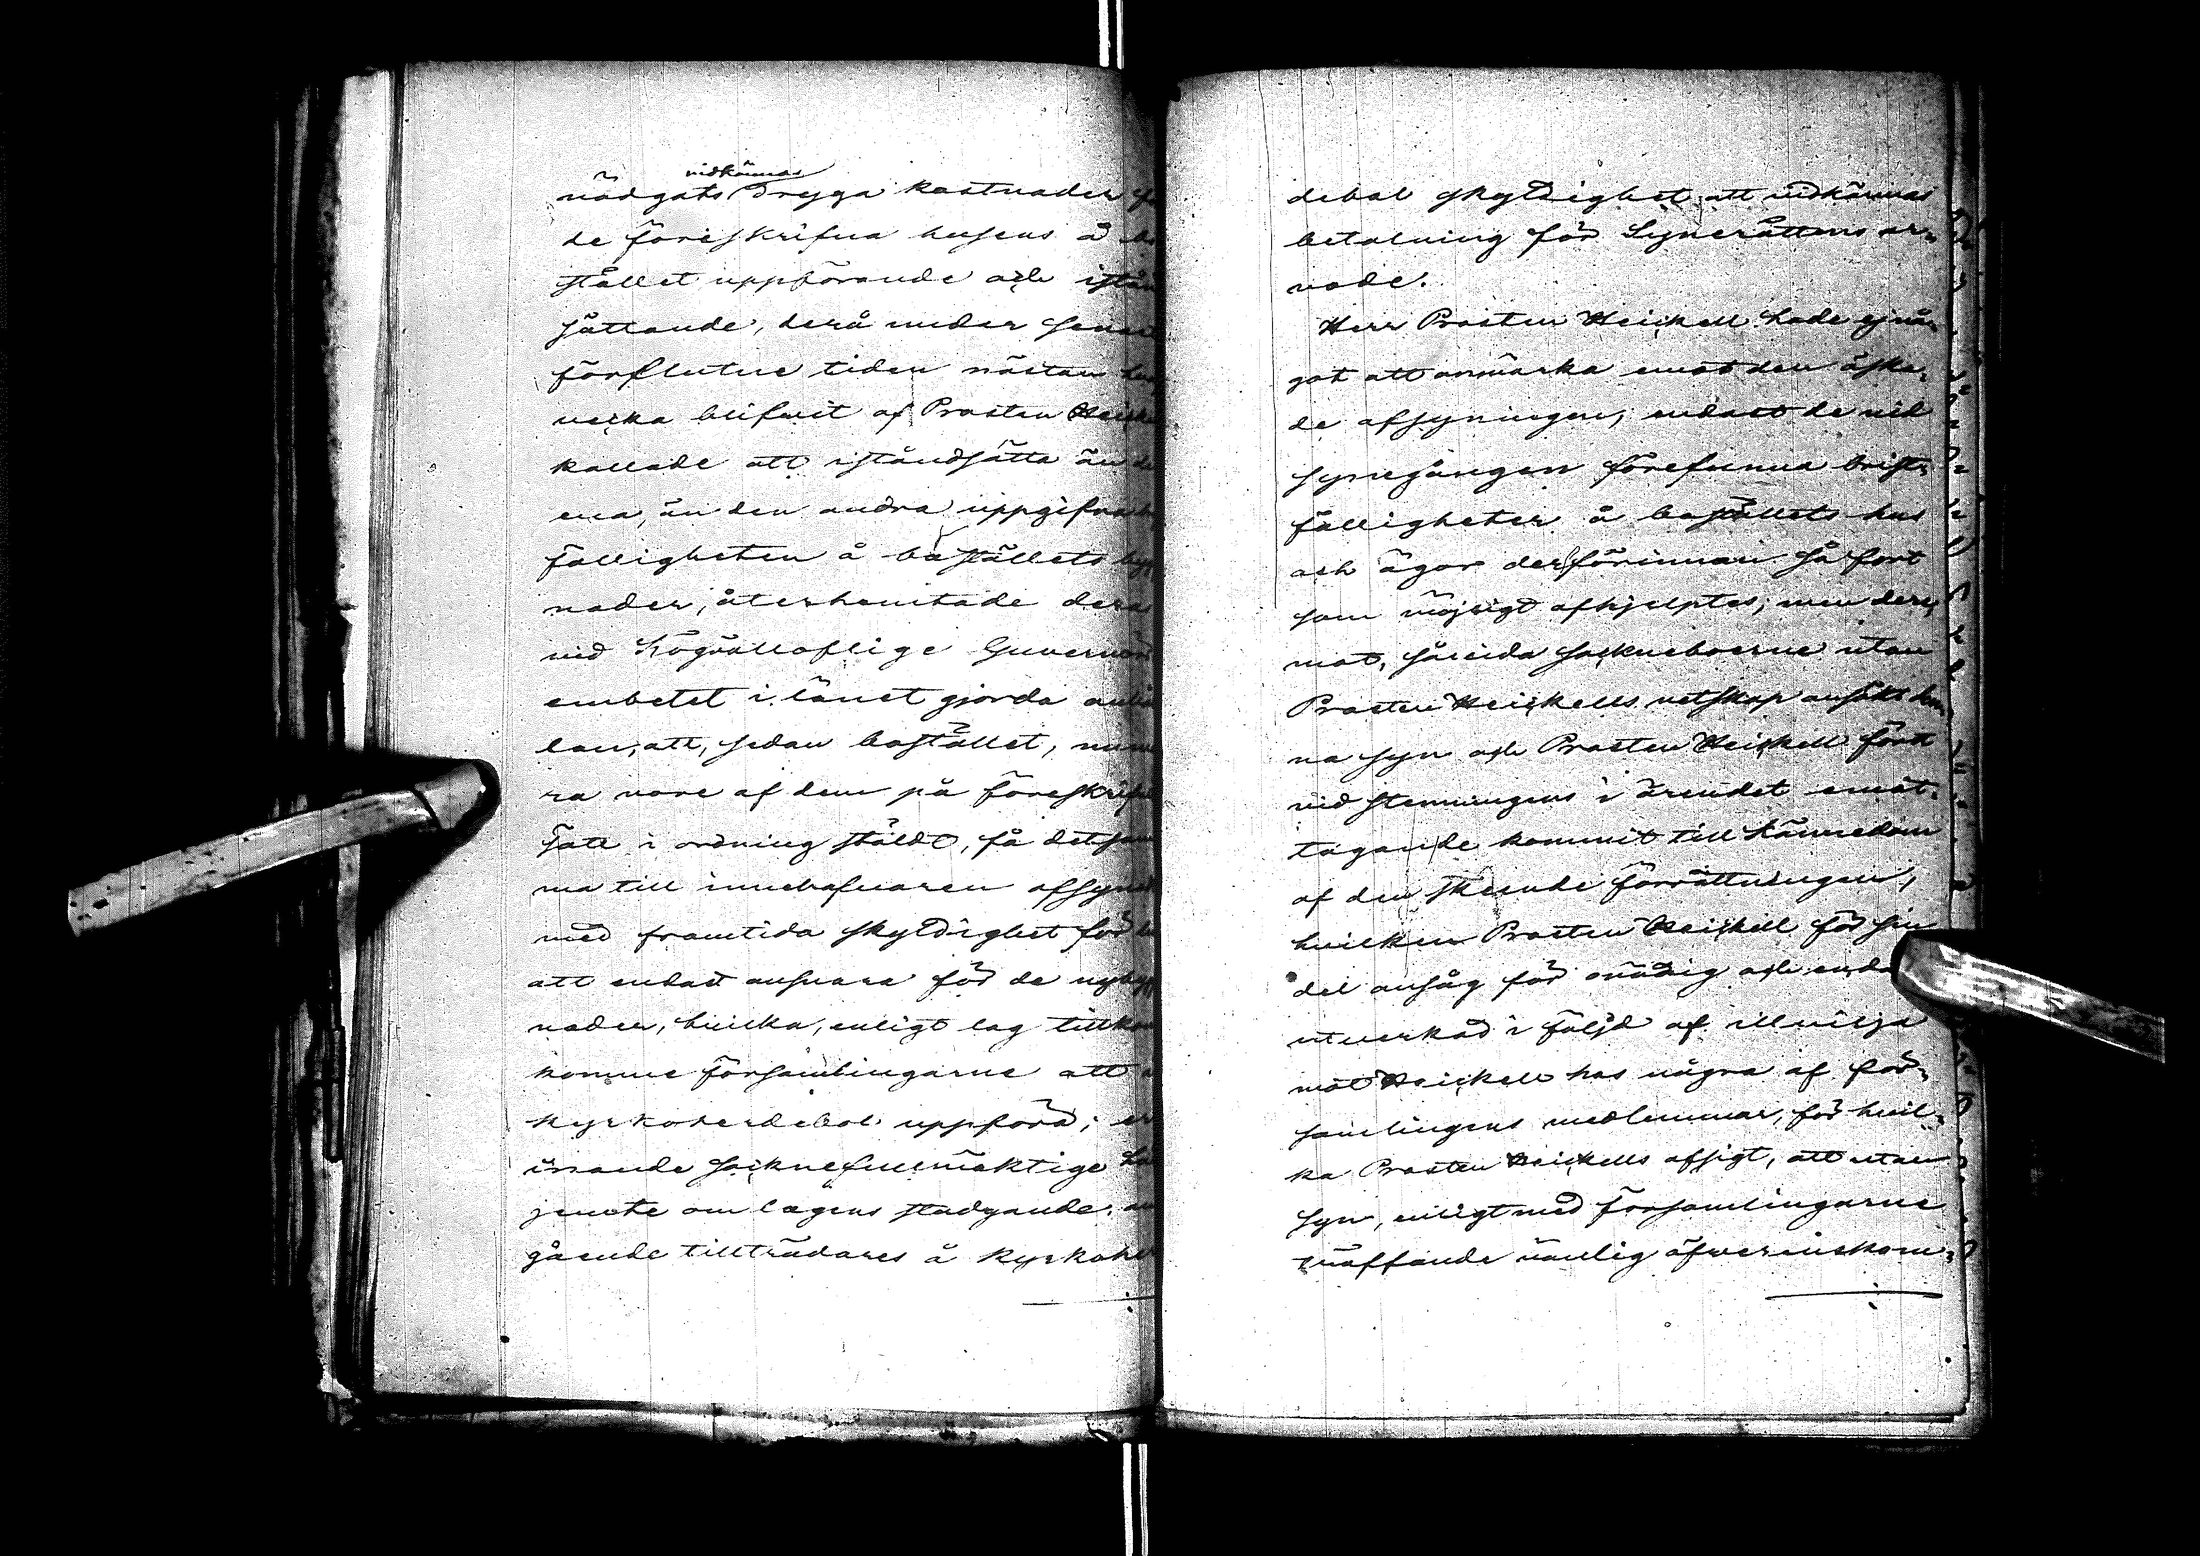 vidkännas
nödgats dryga kostnader
de föreskrifna husens å
stället uppförande och istån
sättande, derå under senast
förflutne tiden nästan
verka blifvit af Prosten Heickell
kallade att iståndsätta än de
ena, än den andra uppgifna
fälligheten å boställets bygg
nader, återhemtade dera
vid Högvälloflige Guvernörs
embetet i länet gjorda anhå
lan, att, sedan bostället, num
ra vore af dem på föreskrifvet
sätt i ordning stäldt, få det sam
ma till innehafvaren afsynadt
med framtida skyldighet för
att endast ansvara för de nybygg
nader, hvilka, enligt lag tillkom
komme församlingarne att
kyrkoherdebol uppföra; er
inrande socknefullmäktige
jemte om lagens stadgande, an
gående tillträdares å kyrkoher
debol skyldighet att vidkännas
betalning för Synerättens ar-
vode.
Herr Prosten Heickell hade ej nå-
got att anmärka emot den äska-
de afsyningen, endast de vid
synegången förefunna brist-
fälligheter å boställets hus
och ägor derförinnan så fort
som möjligt afhjelptes; men der-
mot, såvida sockneboerne utan
Prosten Heickells vetskap ansökt den-
na syn och Prosten Heickell först
vid stemningens i ärendet emot-
tagande kommit till kännedom
af den skeende förrättningen,
hvilken Prosten Heickell för sin
del ansåg för onödig och endast
utverkad i följd af illvilja
mot Heickell hos några af för-
samlingens medlemmar, för hvil-
ka Prosten Heickells afsigt, att utan
syn, enligt med församlingarne
träffande vänlig öfverenskom-